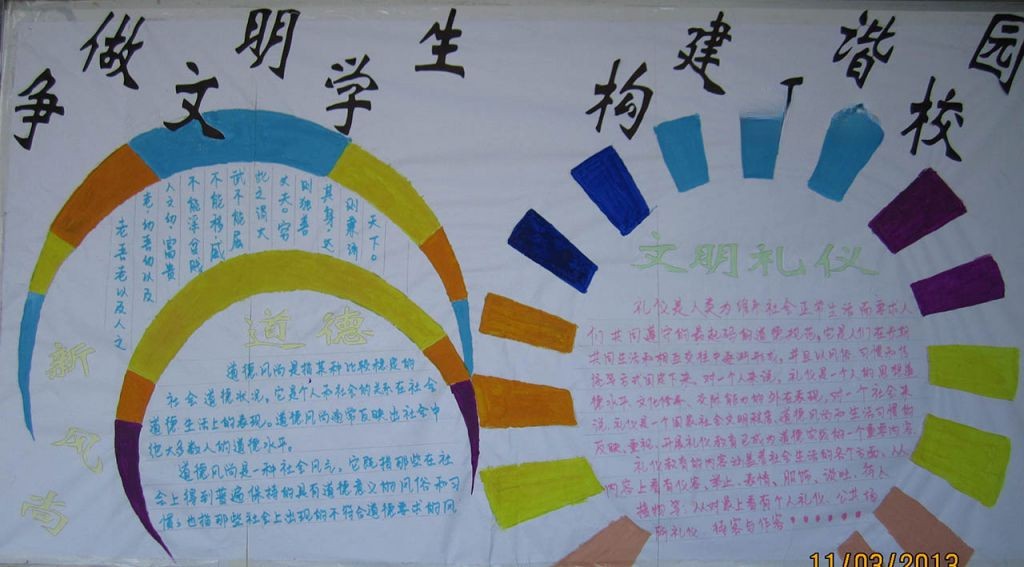 争做文明学生
构建丁谐校园
天下。
则兼济
其身，达
则独善
丈夫。穷
此之谓大
武不能屈
不能移，威
不能淫，贫贱
人之幼。富贵
老，幼吾幼以及
老吾老以及人之
新风尚
道德
道德风尚是指某种比较稳定的
社会道德状况，它是个人和社会的关系在社会
道德生活上的表现。道德风尚通常反映出社会中
绝大多数人的道德水平。
道德风尚是一种社会风气，它既指那些在社
会上得到普遍保持的具有道德意义的风俗和习
惯；也指那些社会上出现的不符合道德要求的风
文明礼仪
礼仪是人类为维系社会正常生活而要求人
们共同遵守的最起码的道德规范，它是人们在长期
共同生活和相互交往中逐渐形成，并且以风俗、习惯和传
统等方式固定下来。对一个人来说，礼仪是一个人的思想道
德水平、文化修养、交际能力的外在表现，对一个社会来
说，礼仪是一个国家社会文明程度、道德风尚和生活习惯的
反映。重视、开展礼仪教育已成为道德实践的一个重要内容。
礼仪教育的内容涵盖着社会生活的各个方面。从
内容上看有仪容、举止、表情、服饰、谈吐、待人
接物等；从对象上看有个人礼仪、公共场
所礼仪、待客与作客
11/03/2013